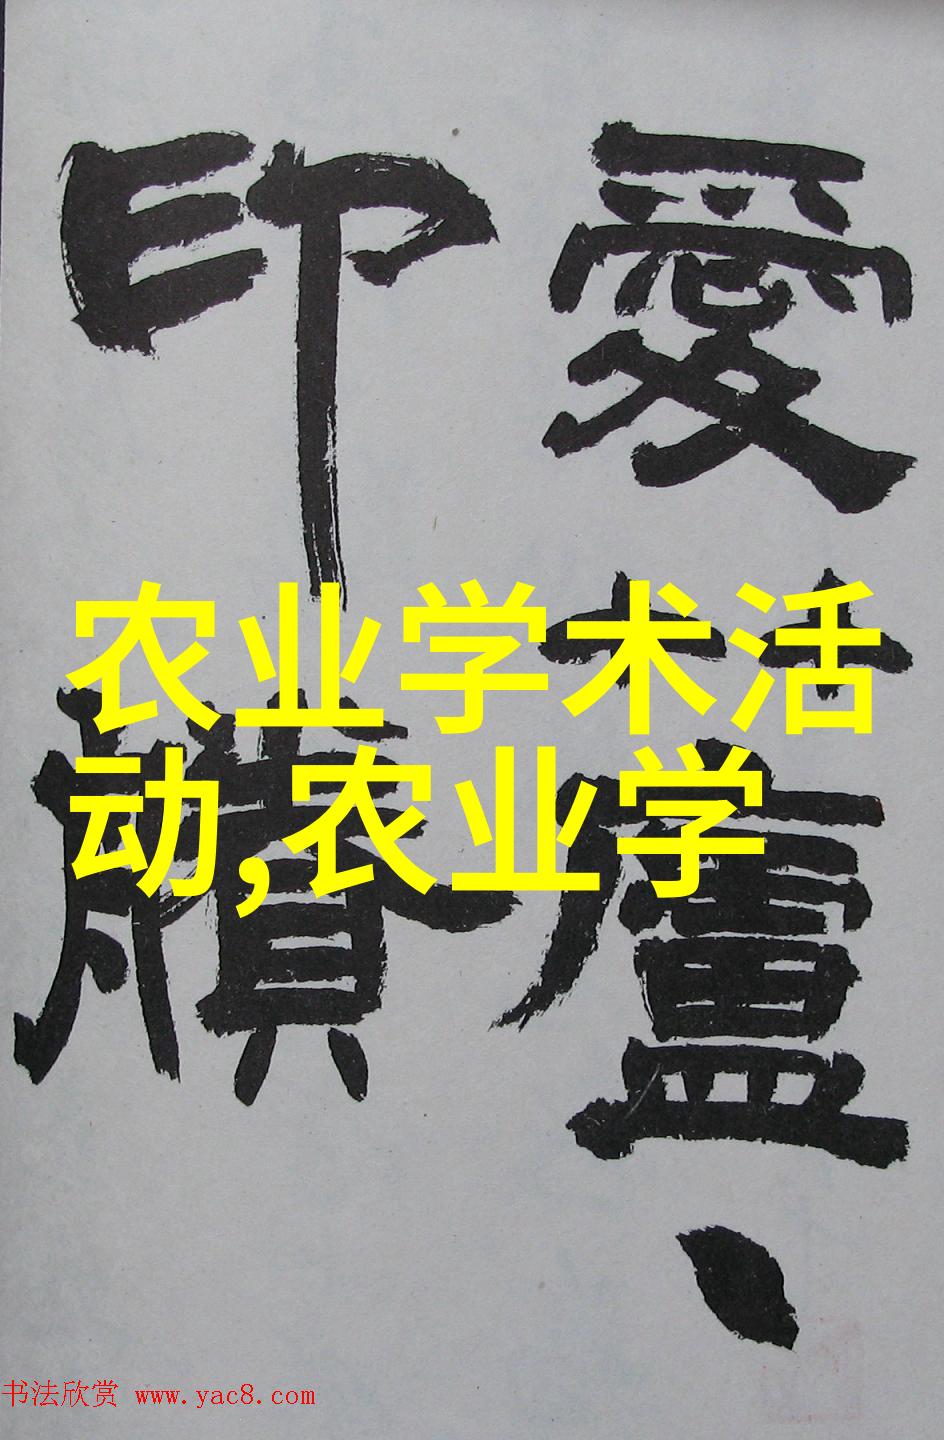 愛蘆
印牘
农业学术活
动,农业学
书法欣赏 www.yac8.com